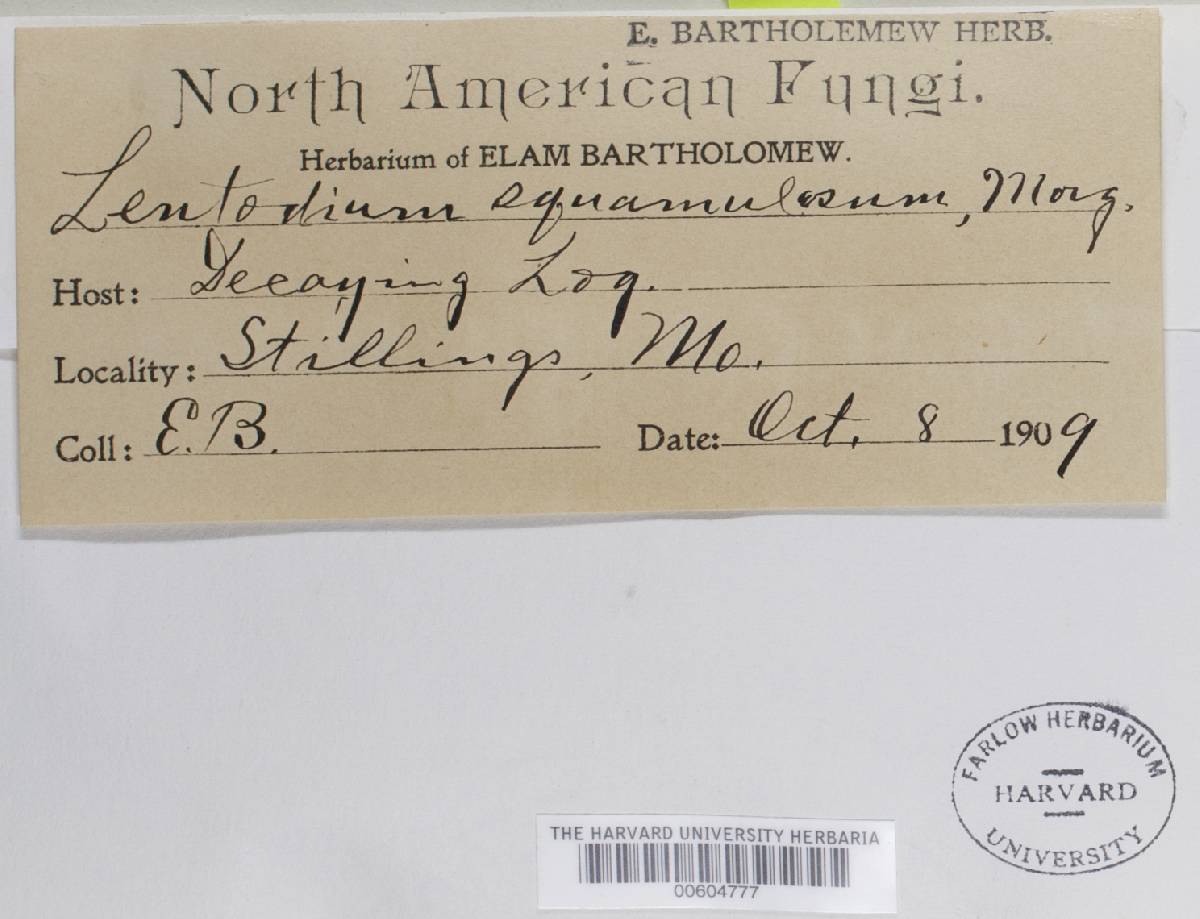 E. BARTHOLEMEW HERB.
North American Fungi.
Herbarium of ELAM BARTHOLOMEW.
Lentodium squamulosum, Morg.
Host: Decaying Log.
Locality: Stillings, Mo.
Coll: E.B. Date: Oct. 8 1909
FARLOW HERBARIUM
HARVARD
UNIVERSITY
THE HARVARD UNIVERSITY HERBARIA
00604777